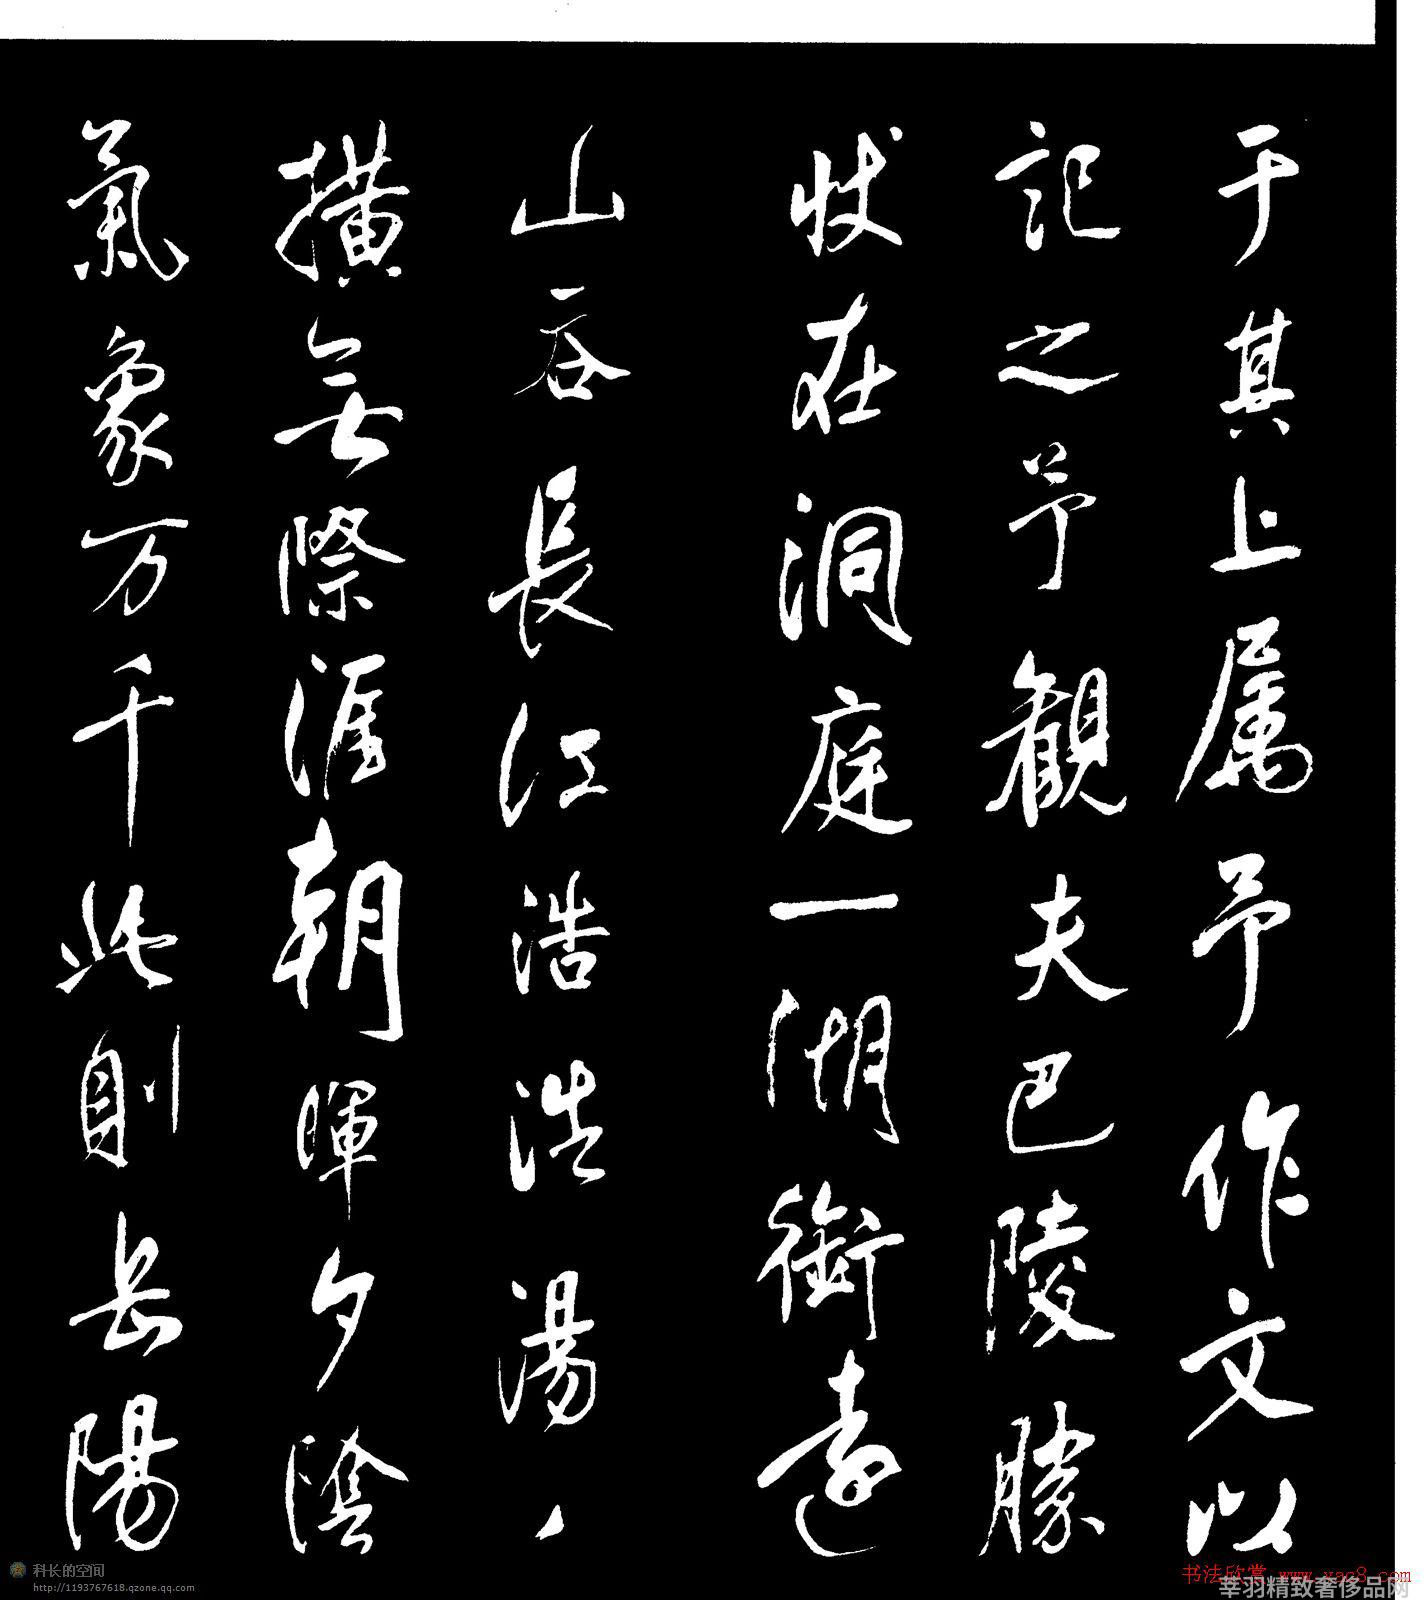 于其上属予作文以
記之予觀夫巴陵勝
狀在洞庭一湖銜遠
山吞長江浩浩湯、
橫無際涯朝暉夕陰
氣象万千此則岳陽
科长的空间
http://1193767618.qzone.qq.com
书法欣赏 www.yac8.com
莘羽精致奢侈品网